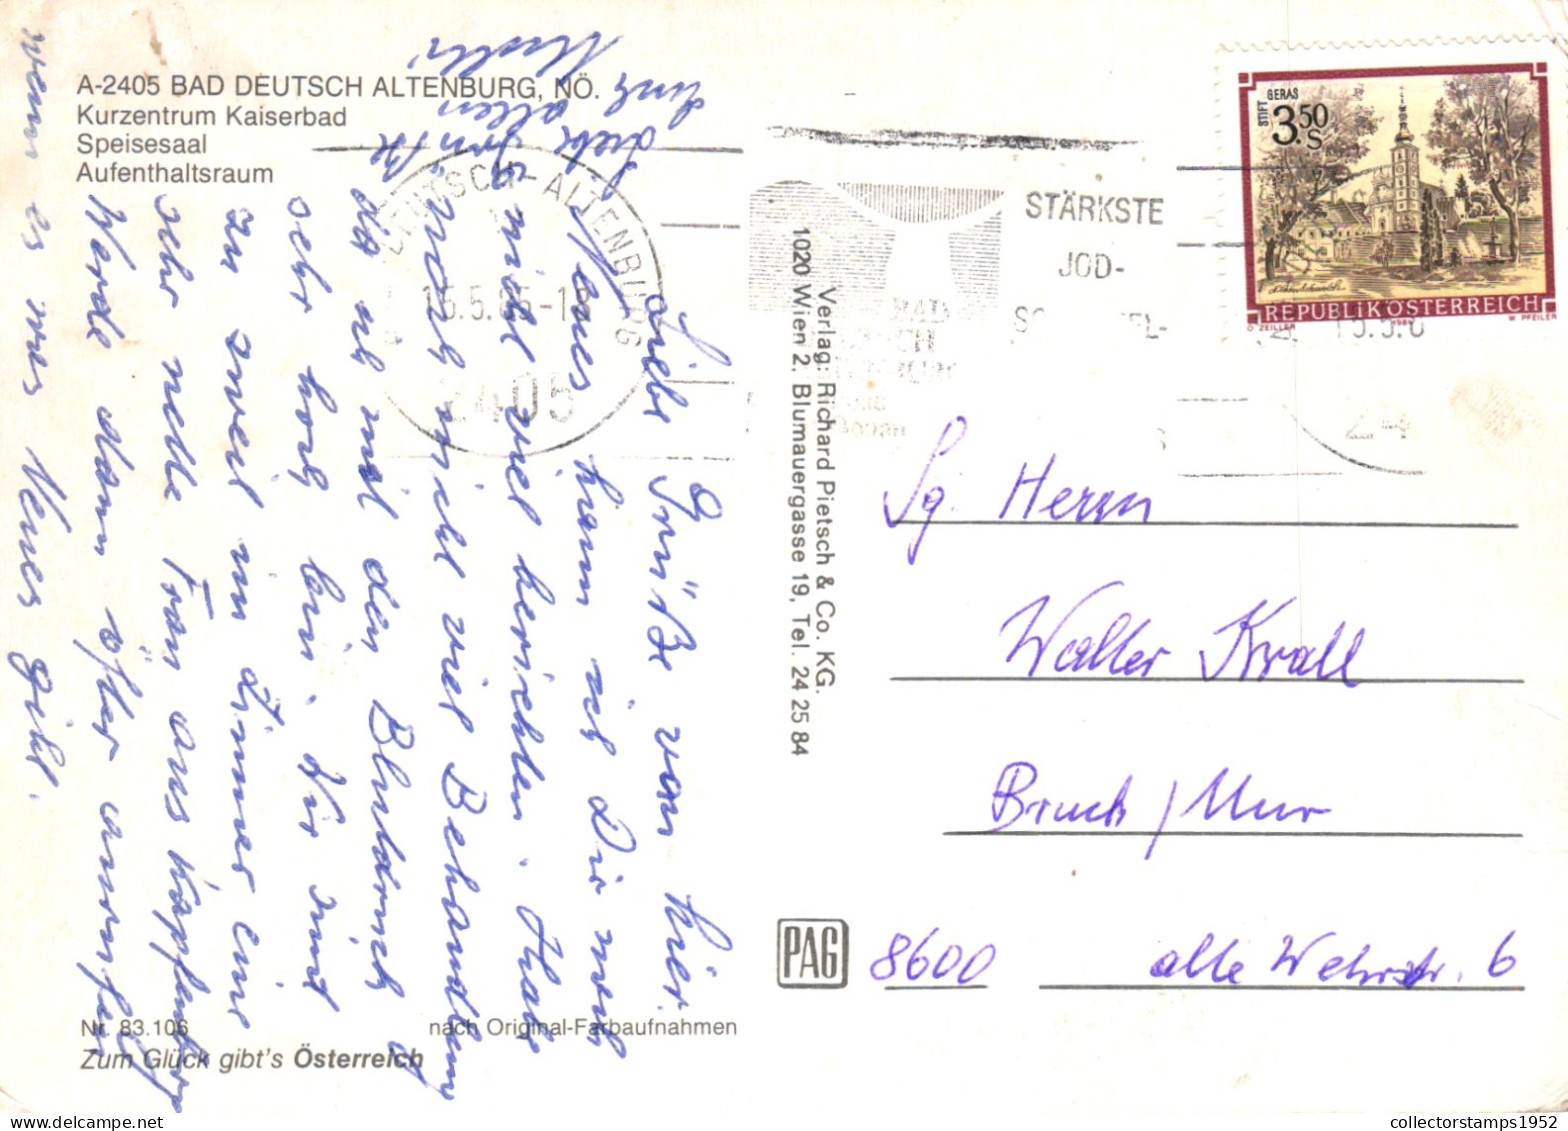 A-2405 BAD DEUTSCH ALTENBURG, NÖ.
Kurzentrum Kaiserbad
Speisesaal
Aufenthaltsraum
Liebe Grüße von hier.
Neues kann ich Dir noch
nicht viel berichten. Habe
noch nicht viel Behandlung
da ich mit dem Blutdruck
sehr hoch bin. Wir sind
zu zweit im Zimmer eine
sehr nette Frau aus Kapfenberg
Werde dann öfter anrufen
wenn es was Neues gibt.
allen
Liebe
DEUTSCH-ALTENBURG
15.5.86-1
2405
STÄRKSTE
JOD-
BAD
STIFT GERAS
3.50 S
REPUBLIK ÖSTERREICH
O. ZEILLER
W. PFEILER
15.5.8
Verlag: Richard Pietsch & Co. KG.
1020 Wien 2, Blumauergasse 19, Tel. 24 25 84
Sg. Herrn
Walter Krall
Bruck / Mur
8600 alte Wehrstr. 6
PAG
Nr. 83.106
nach Original-Farbaufnahmen
Zum Glück gibt's Österreich
collectorstamps1952